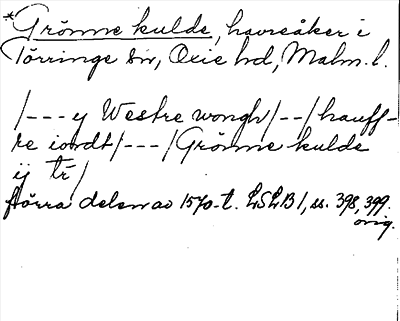 *Grönne kulde, havreåker i
Törringe sn, Oxie hd, Malm. l.
/--- y Westre wongh/--/hauff-
re iordt/---/Grönne kulde
ij tr/
Förra delen av 1570-t. LSLB I, ss. 398, 399.
orig.